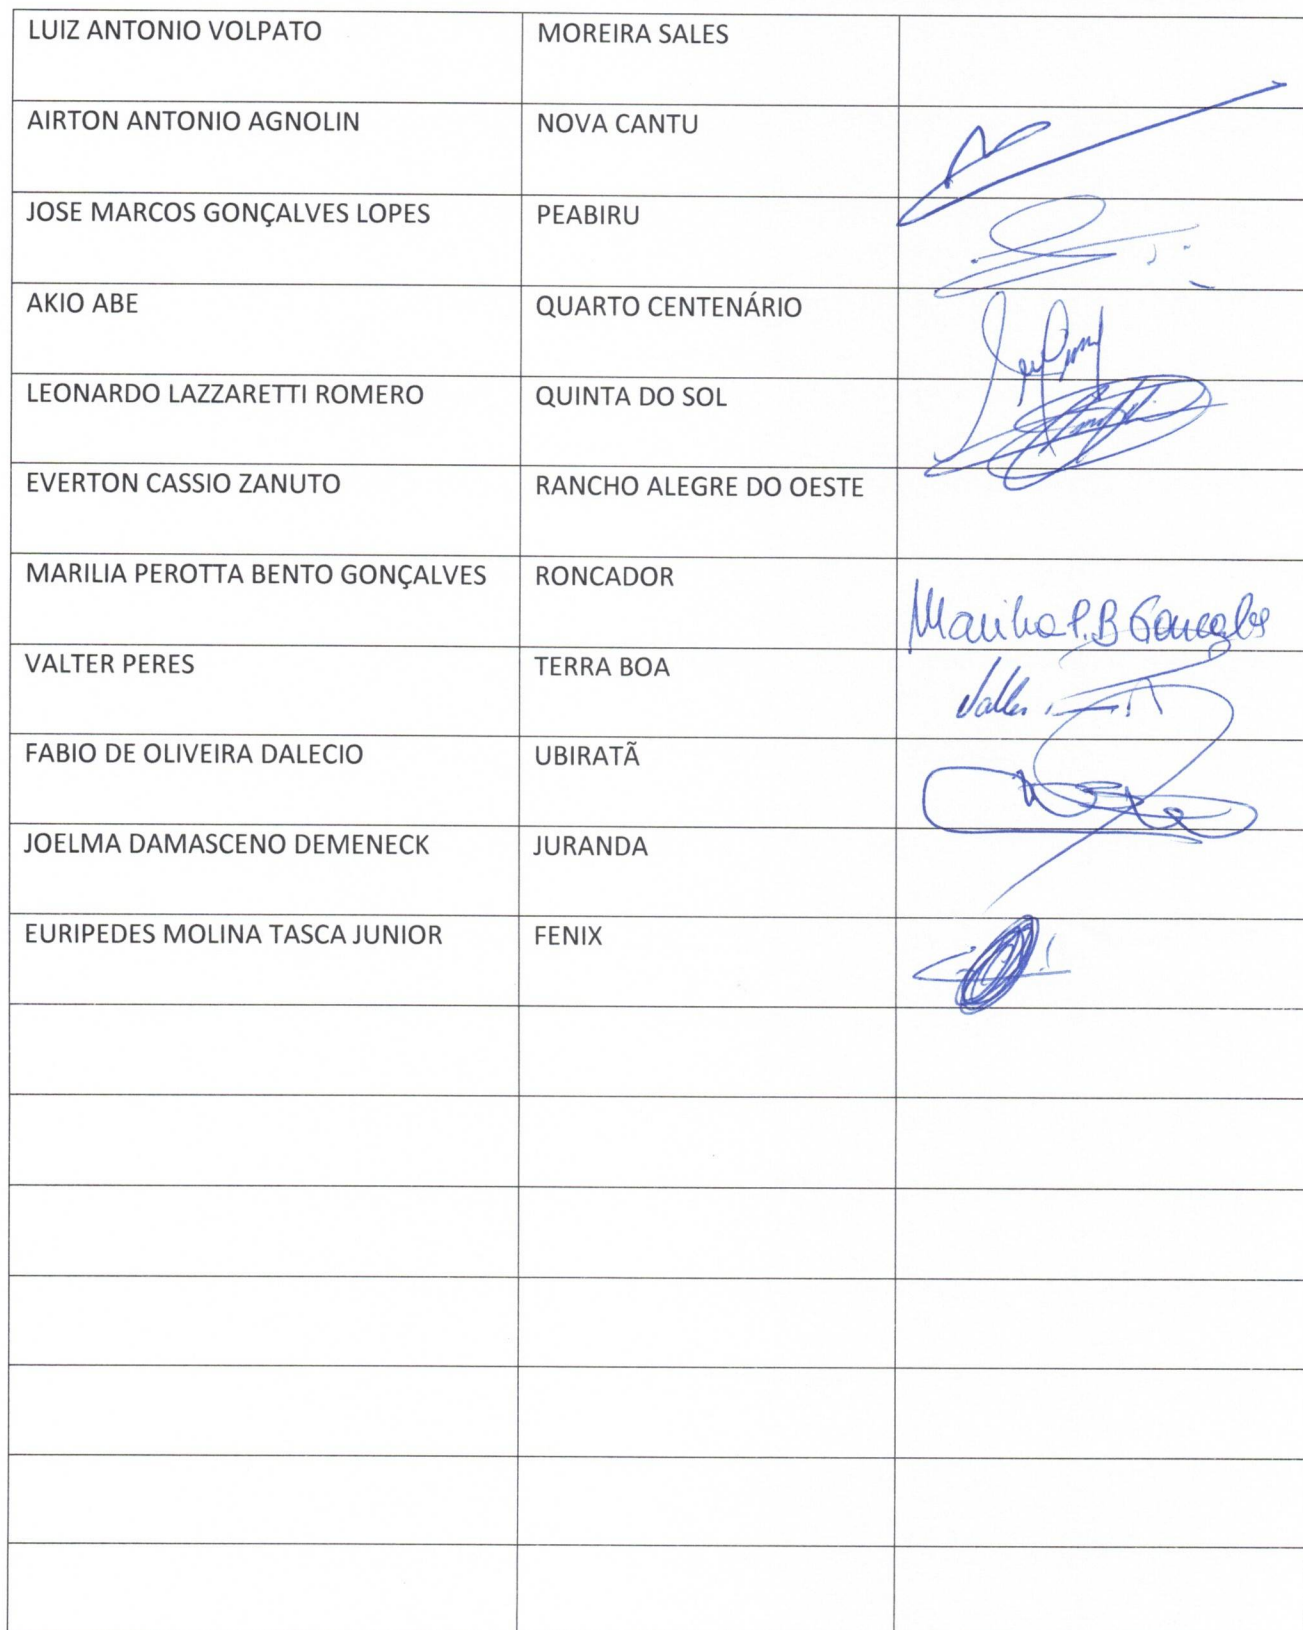 LUIZ ANTONIO VOLPATO MOREIRA SALES
AIRTON ANTONIO AGNOLIN NOVA CANTU
JOSE MARCOS GONÇALVES LOPES PEABIRU
AKIO ABE QUARTO CENTENÁRIO
LEONARDO LAZZARETTI ROMERO QUINTA DO SOL
EVERTON CASSIO ZANUTO RANCHO ALEGRE DO OESTE
MARILIA PEROTTA BENTO GONÇALVES RONCADOR Marilia P. B Gonçalves
VALTER PERES TERRA BOA Valter
FABIO DE OLIVEIRA DALECIO UBIRATÃ
JOELMA DAMASCENO DEMENECK JURANDA
EURIPEDES MOLINA TASCA JUNIOR FENIX